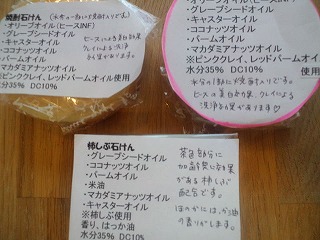 焼酎石けん (水分の一部が焼酎入りです。)
・オリーブオイル(ピースINF)
・グレープシードオイル
・キャスターオイル
・ココナッツオイル
・パームオイル
・マカダミアナッツオイル
※ピンククレイ、レッドパームオイル使用
水分35% DC10%
・オリーブオイル(ピースINF)
・グレープシードオイル
・キャスターオイル
・ココナッツオイル
・パームオイル
・マカダミアナッツオイル
※ピンククレイ、レッドパームオイル
水分35% DC10% 使用
水分の一部に焼酎入りです。
柿しぶ石けん
・グレープシードオイル
・ココナッツオイル
・パームオイル
・米油
・マカダミアナッツオイル
・キャスターオイル
※柿しぶ使用
香り、はっか油
水分35% DC10%
茶色部分に
加齢臭に効果
がある柿しぶ
配合です。
ほのかにはっか油
の香りがします。